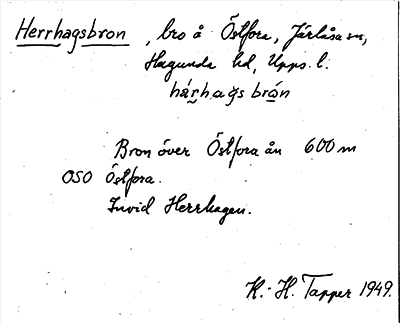 Herrhagsbron, bro å Östfora, Järlåsa sn,
Hagunda hd, Upps. l.
hárhags brón
Bron över Östforaån 600 m
OSO Östfora.
Invid Herrhagen.
K.-H. Tapper 1949.